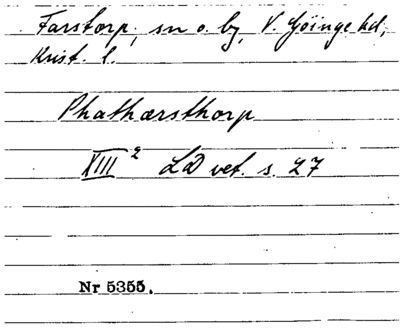 Farstorp, sn o. by, V. Göinge hd,
Krist. l.
Phathærsthorp
XIII 2 LD vet. s. 27
Nr 5355.